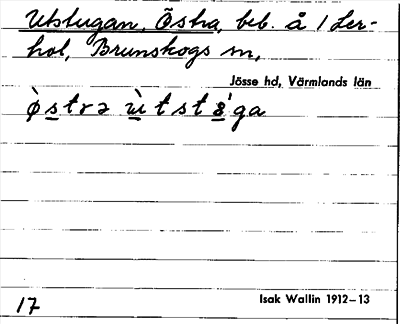 Utstugan, Östra, beb. å 1 Ler-
hol, Brunskogs sn,
Jösse hd, Värmlands län
ø̀strə ùtstǵga
17
Isak Wallin 1912–13